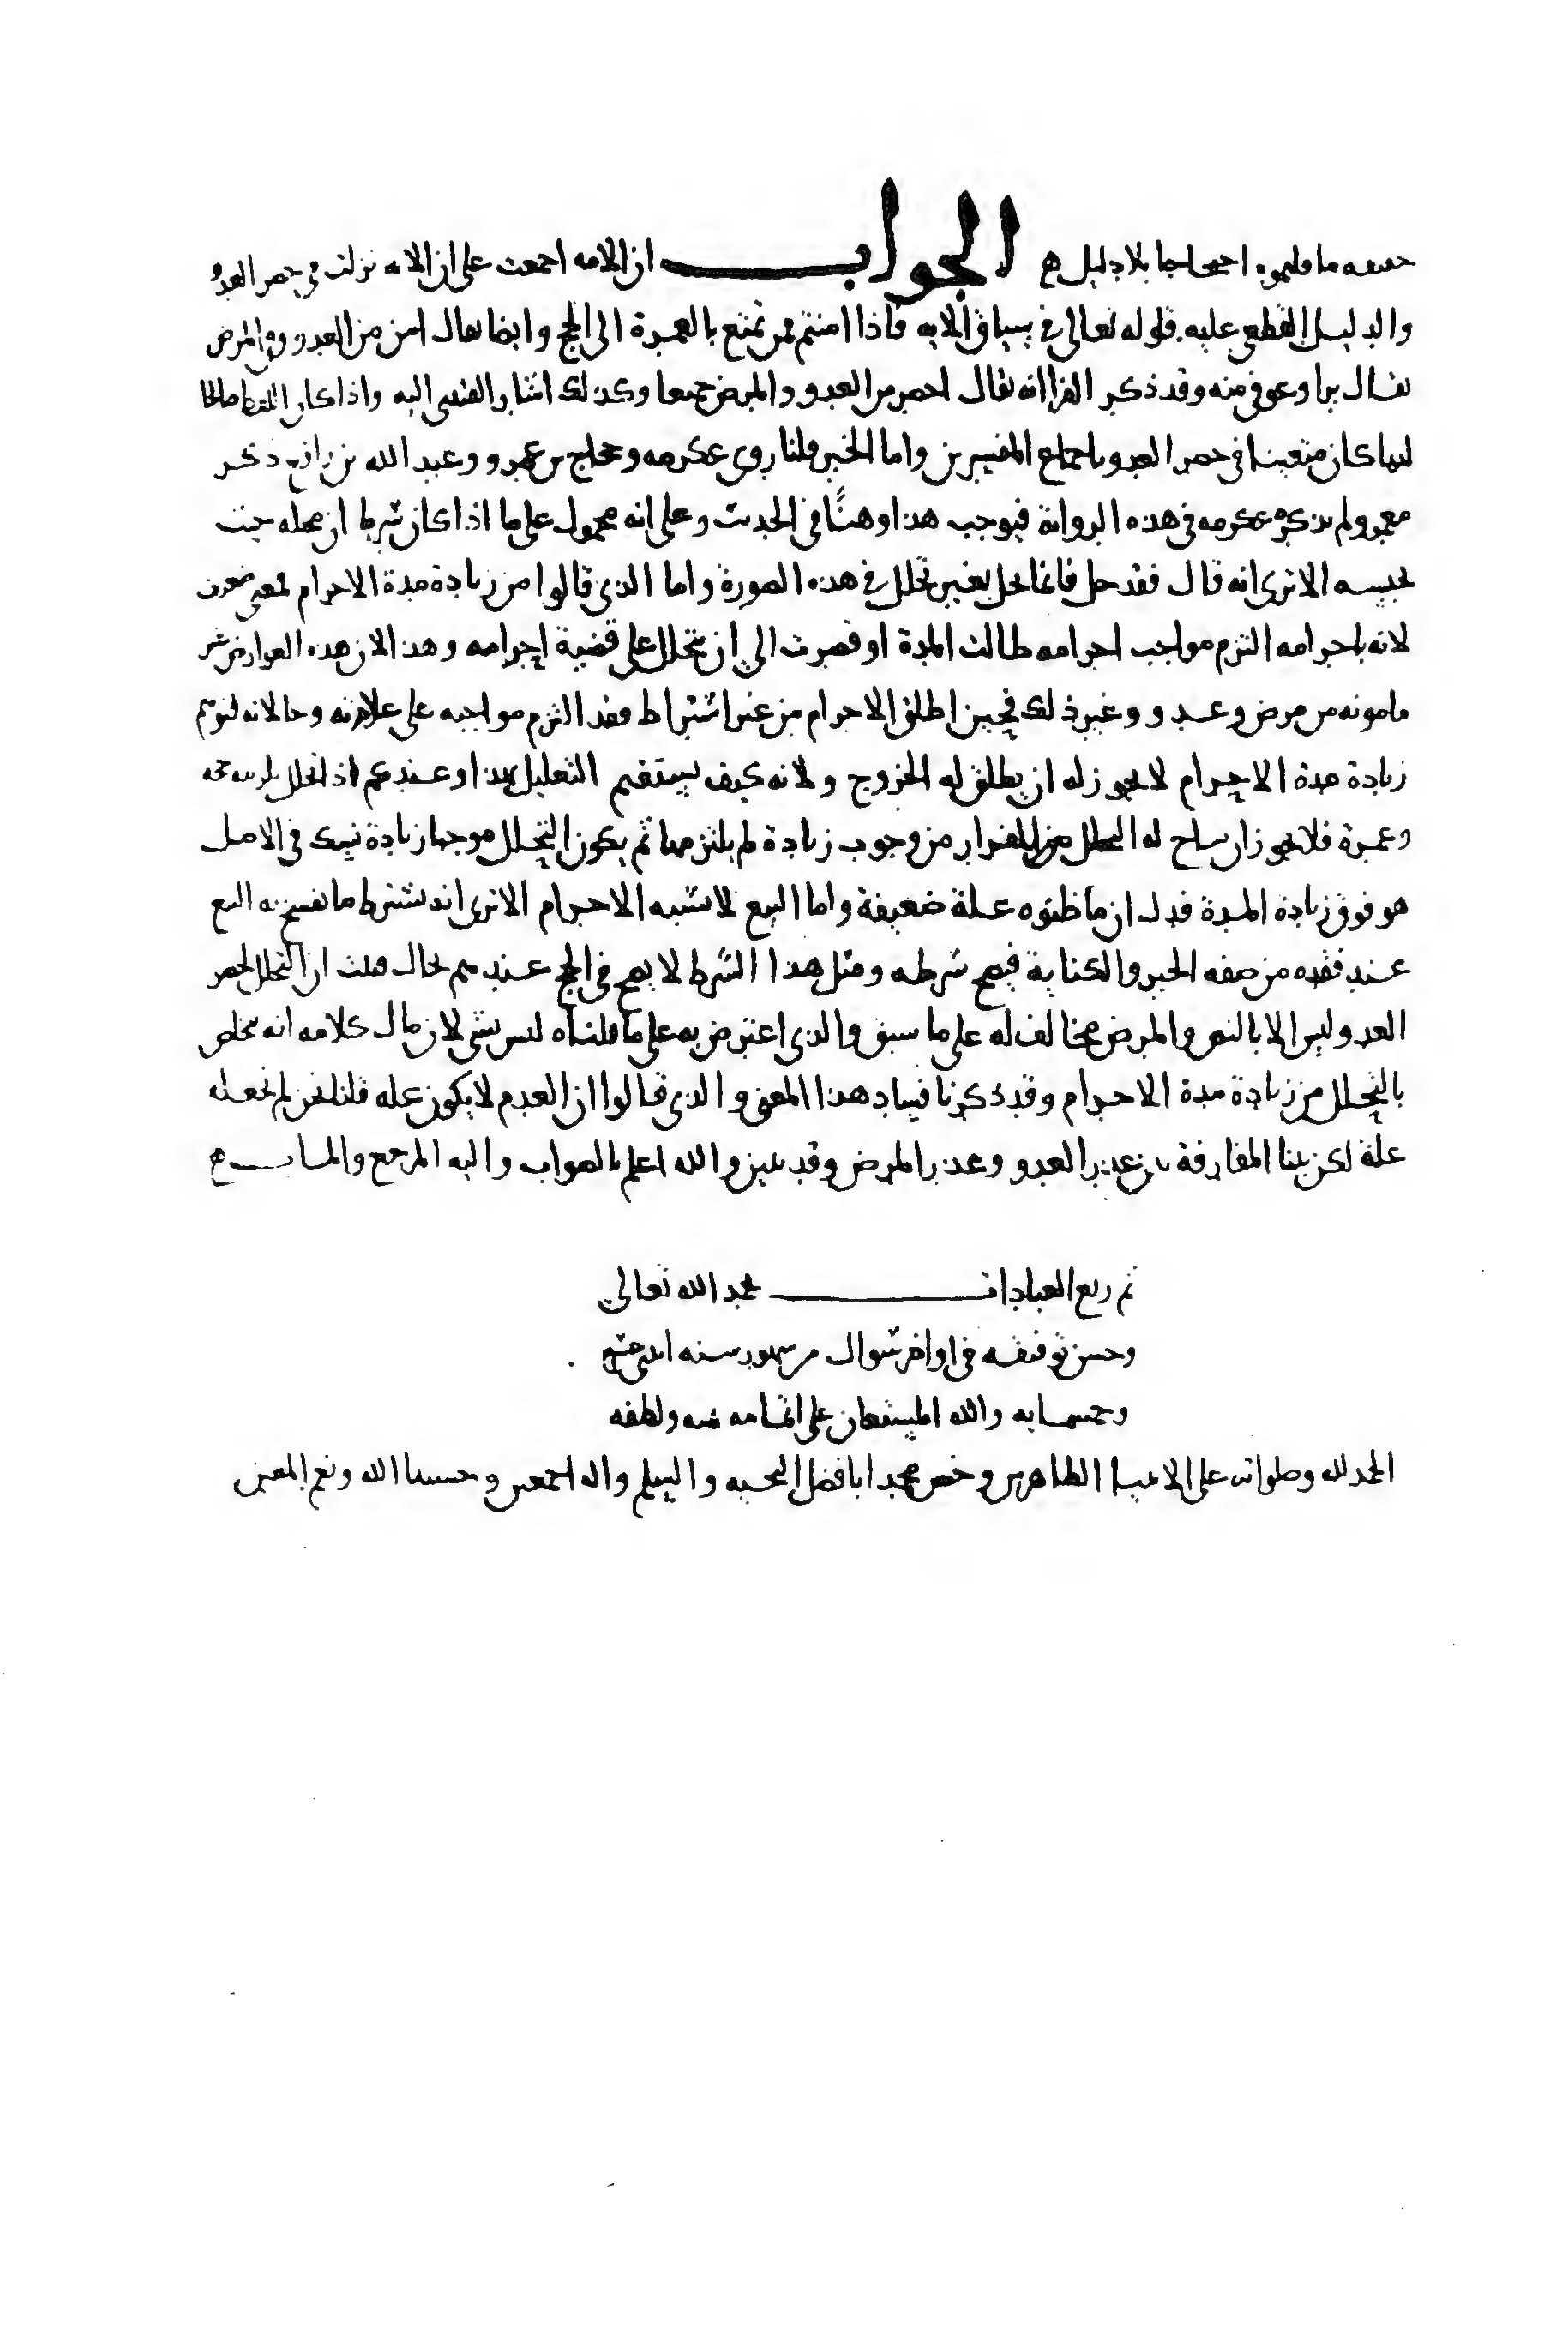 ما قلتموه احتجاجا بلا دليل ه الجواب ان الامه اجمعت على ان الايه نزلت في حصر العدو
والدليل القطعي عليه قوله تعالى في سياق الايه فاذا امنتم فمن تمتع بالعمرة الى الحج وايضا يقال امن من العدو وفي المرض
يقال برا وعوفى منه وقد ذكر الفرا انه يقال احصر من العدو والمرض جميعا وكذلك اشار القتبى اليه واذا كان اللفظ صالحا
لهما كان متعينا في حصر العدو باجماع المفسرين واما الخبر قلنا روى عكرمه وحجاج بن عمرو وعبد الله بن رافع ذكر
معمر ولم يذكره عكرمه في هذه الرواية فيوجب هذا وهنًا في الحديث وعلى انه محمول على ما اذا كان شرط ان محله حيث
يحبسه الا ترى انه قال فقد حل فانما يحل بغير تحلل في هذه الصورة واما الذى قالوا من زيادة مدة الاحرام فمعنى ضعيف
لانه باحرامه التزم مواجب احرامه طالت المدة او قصرت الى ان يتحلل على قضية احرامه وهذا لان هذه العوارض غير
مامونه من مرض وعدو وغير ذلك فحين اطلق الاحرام من غير اشتراط فقد التزم مواجبه على علاته وحالاته فتوهم
زيادة مدة الاحرام لا يجوز له ان يطلق له الخروج ولانه كيف يستقيم التعليل بهذا وعندكم اذا تحلل يلزمه حجه
وعمرة فلا يجوز ان يباح له التحلل للفرار من وجوب زيادة لم يلتزمها ثم يكون التحلل موجبا زيادة نسك في الاصل
هو فوق زيادة المدة فدل ان ما ظنوه علة ضعيفة واما البيع لا يشبه الاحرام الا ترى انه يشترط ما يفسخ به البيع
عند فقده من صفه الخبز والكتابة فيصح شرطه ومثل هذا الشرط لا يصح في الحج عندهم بحال فثبت ان التحلل بحصر
العدو ليس الا بالنص والمرض مخالف له على ما سبق والذى اعترض به على ما قلناه ليس بشى لان مال كلامه انه يتخلص
بالتحلل من زيادة مدة الاحرام وقد ذكرنا فساد هذا المعنى والذى قالوا ان العدم لا يكون عله قلنا نحن لم نجعله
علة لكن بينا المفارقة بين عذر العدو وعذر المرض وقد تبين والله اعلم بالصواب واليه المرجع والماب ه
تم ربع العبادات بحمد الله تعالى
وحسن توفيقه في اواخر شوال من شهور سنه
وخمسمايه والله المستعان على اتمامه بمنه ولطفه
الحمد لله وصلواته على الانبيا الطاهرين وخص محمدا بافضل التحيه والتسليم واله اجمعين وحسبنا الله ونعم المعين